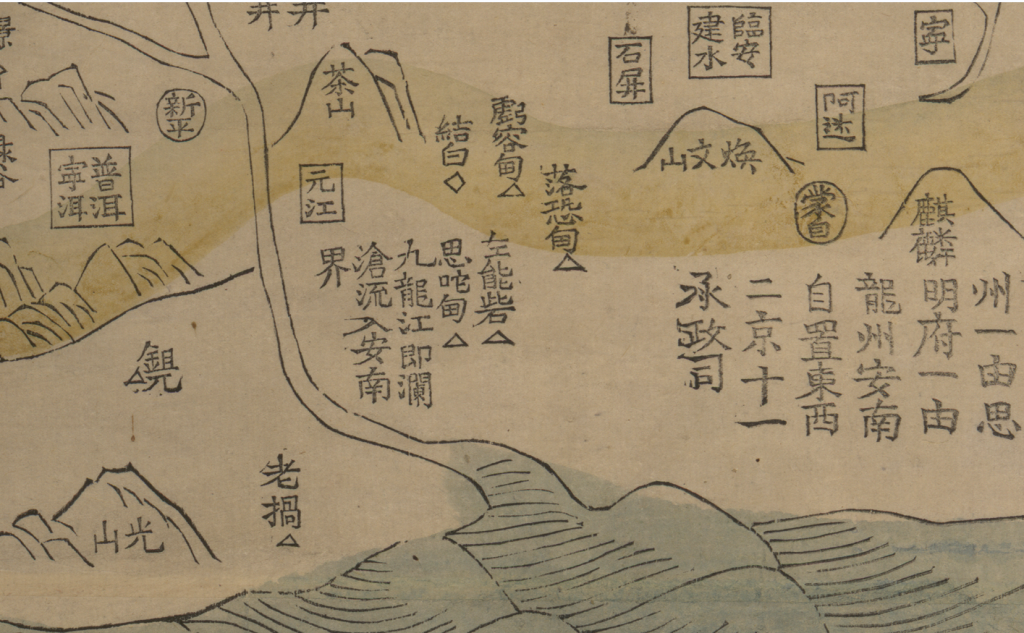 井
井
寧
臨安
建水
石屏
阿迷
茶山
新平
普洱
寧洱
元江
結白
虧容甸
落恐甸
左能砦
思咜甸
煥文山
蒙自
麒麟
州一由思
明府一由
龍州安南
自置東西
二京十一
承政司
九龍江即瀾
滄流入安南
界
老撾
光山